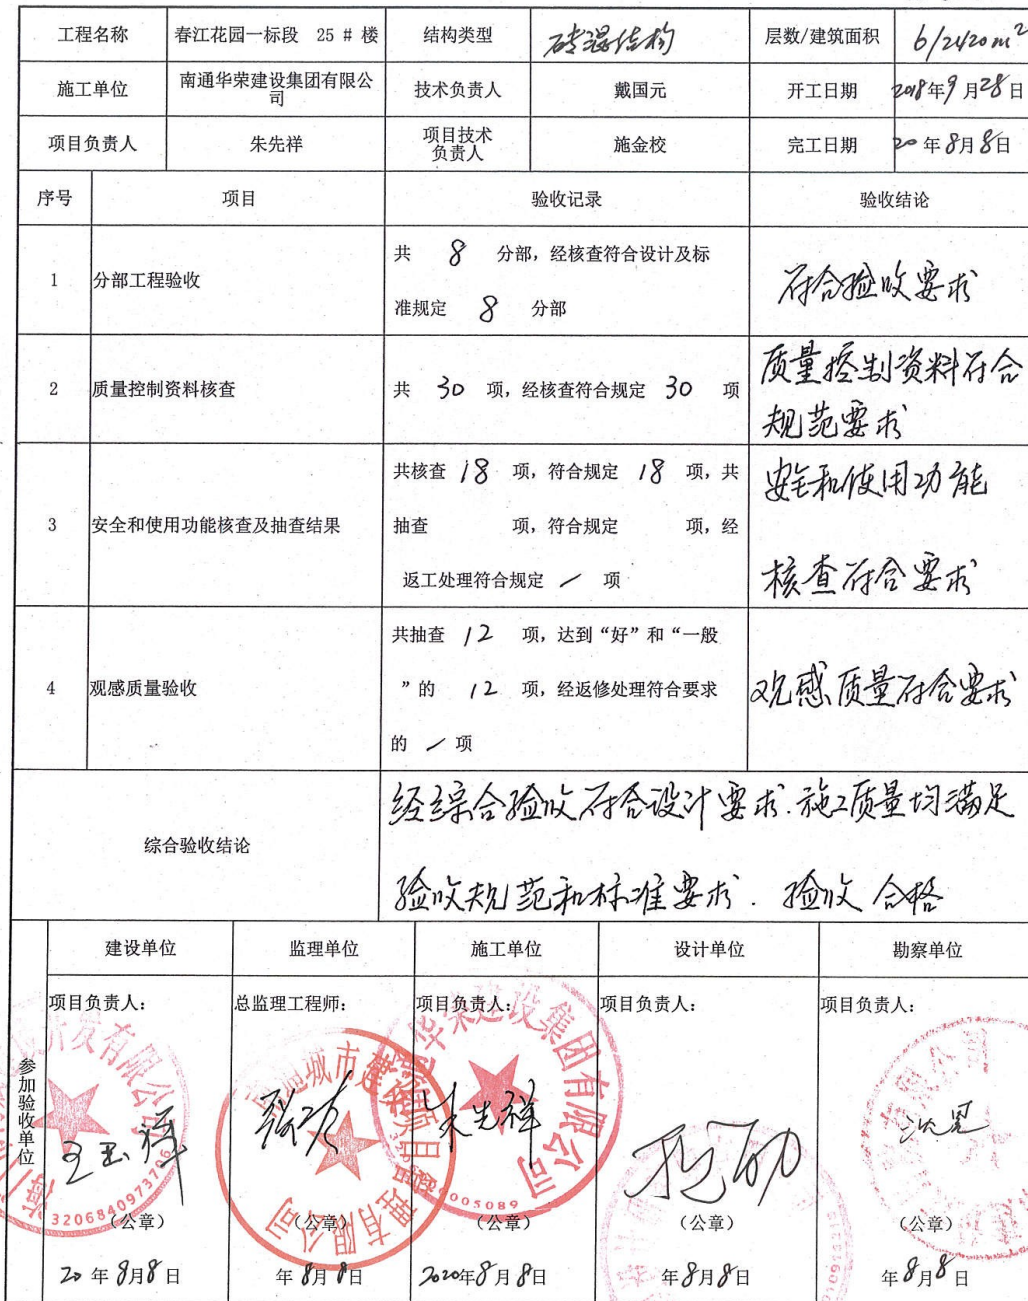 工程名称 春江花园一标段 25 # 楼 结构类型 砖混结构 层数/建筑面积 6/2420m²
施工单位 南通华荣建设集团有限公司 技术负责人 戴国元 开工日期 2018年9月28日
项目负责人 朱先祥 项目技术负责人 施金校 完工日期 20年8月8日
序号 项目 验收记录 验收结论
1 分部工程验收 共 8 分部，经核查符合设计及标
准规定 8 分部
符合验收要求
2 质量控制资料核查 共 30 项，经核查符合规定 30 项
质量控制资料符合
规范要求
3 安全和使用功能核查及抽查结果
共核查 18 项，符合规定 18 项，共
抽查 项，符合规定 项，经
返工处理符合规定 / 项
安全和使用功能
核查符合要求
4 观感质量验收
共抽查 12 项，达到“好”和“一般
”的 12 项，经返修处理符合要求
的 / 项
观感质量符合要求
综合验收结论
经综合验收符合设计要求.施工质量均满足
验收规范和标准要求. 验收合格
参加验收单位
建设单位 监理单位 施工单位 设计单位 勘察单位
项目负责人： 总监理工程师： 项目负责人： 项目负责人： 项目负责人：
朱先祥
华荣建设集团有限公司
城市建
理有限公司
开发有限公司
3206840973706
005089
（公章） （公章） （公章） （公章） （公章）
20年8月8日 年8月8日 2020年8月8日 年8月8日 年8月8日